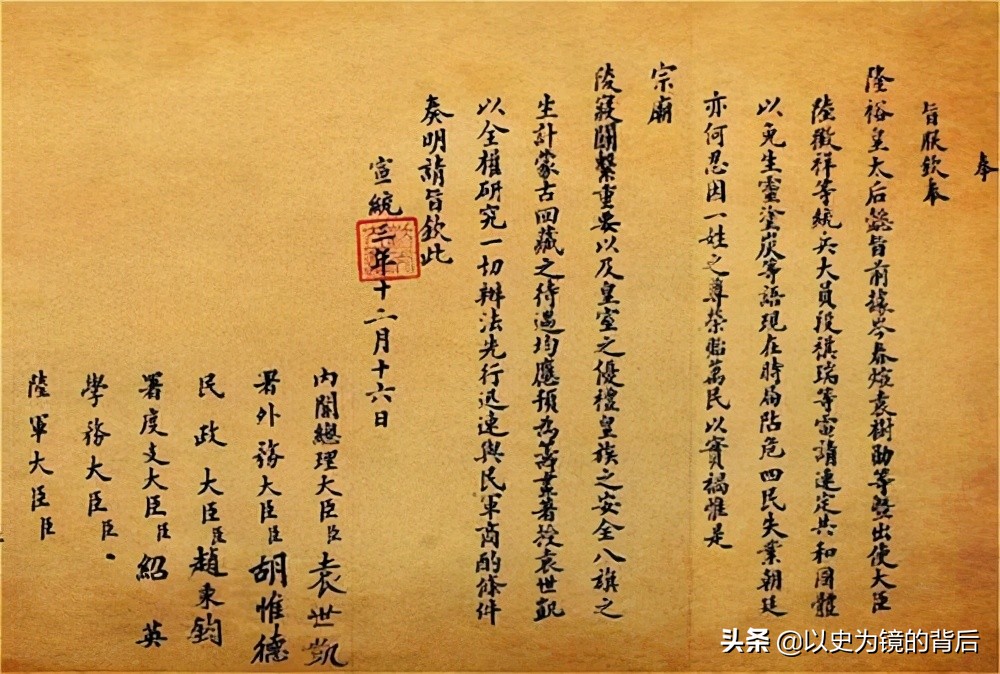 奉
旨朕欽奉
隆裕皇太后懿旨前據岑春煊袁樹勛等暨出使大臣
陸徵祥等統兵大員段祺瑞等電請速定共和國體
以免生靈塗炭等語現在時局阽危四民失業朝廷
亦何忍因一姓之尊榮貽萬民以實禍惟是
宗廟
陵寢關繫重要以及皇室之優禮皇族之安全八旗之
生計蒙古回藏之待遇均應預為籌畫著授袁世凱
以全權研究一切辦法先行迅速與民軍商酌條件
奏明請旨欽此
宣統三年十二月十六日
內閣總理大臣臣袁世凱
署外務大臣臣胡惟德
民政大臣臣趙秉鈞
署度支大臣臣紹英
學務大臣臣
陸軍大臣臣
头条 @以史为镜的背后